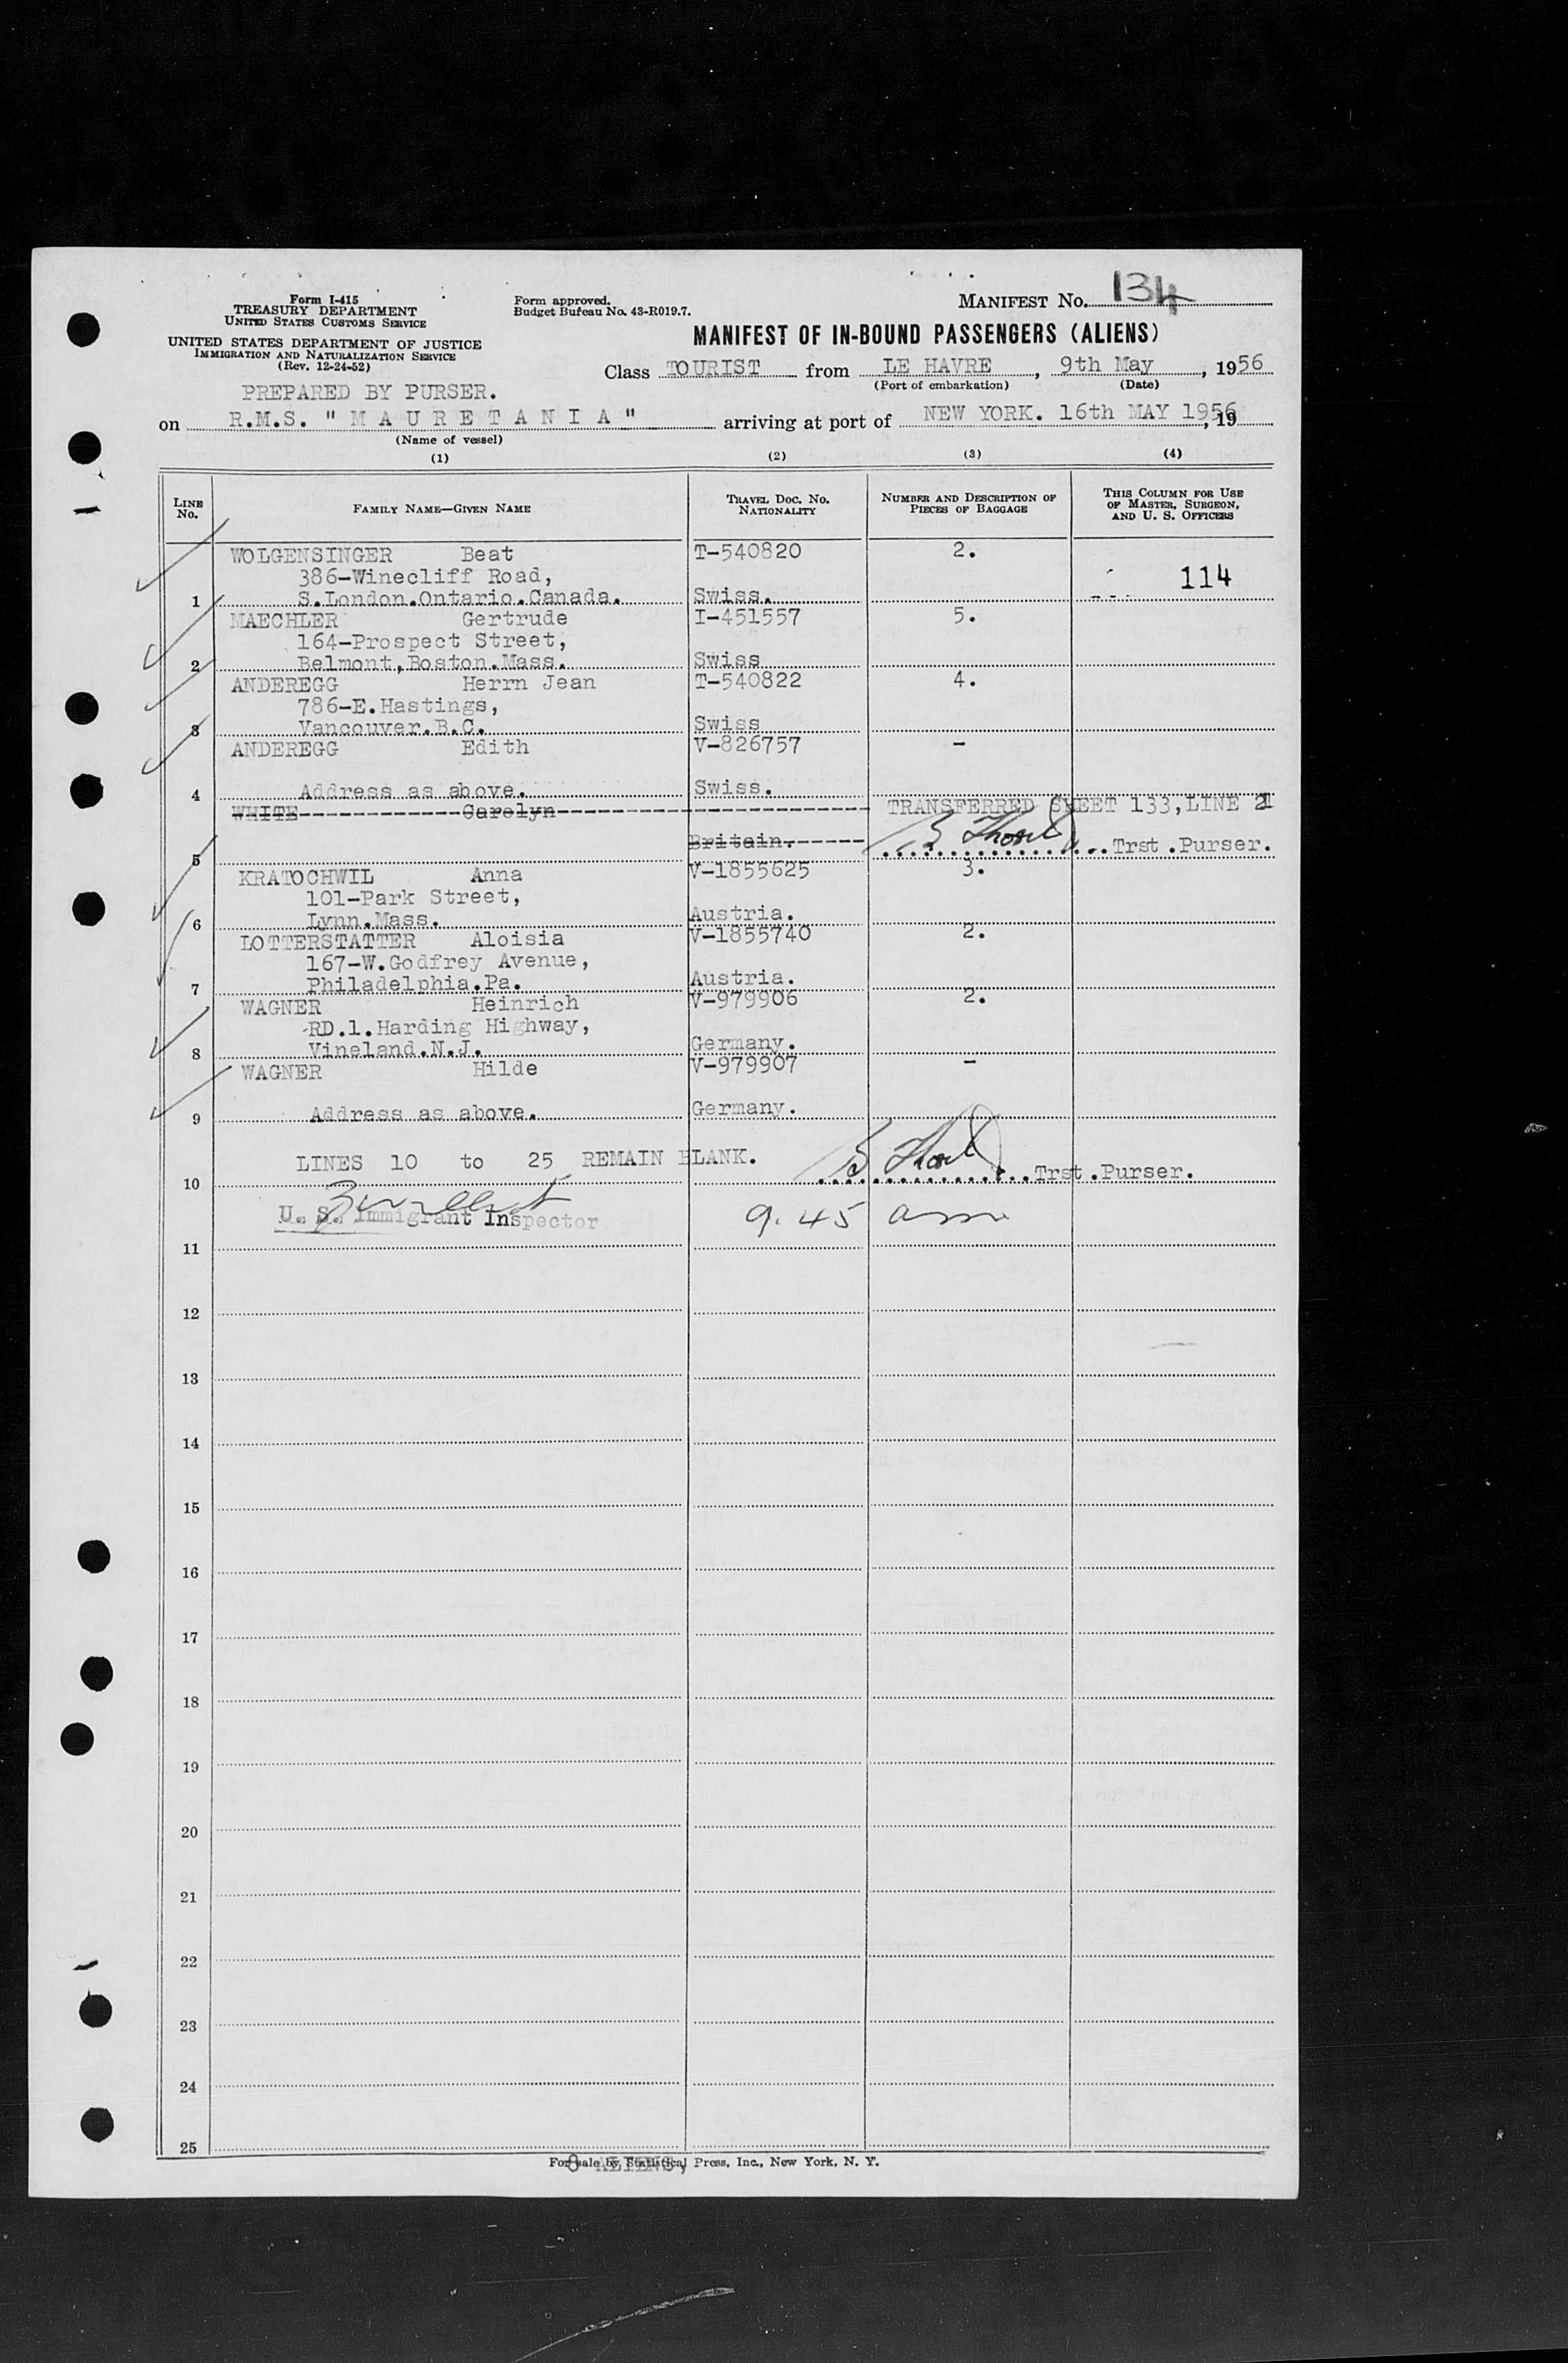 Form I-415
TREASURY DEPARTMENT
UNITED STATES CUSTOMS SERVICE
UNITED STATES DEPARTMENT OF JUSTICE
IMMIGRATION AND NATURALIZATION SERVICE
(Rev. 12-24-52)
Form approved.
Budget Bureau No. 43-R019.7.
MANIFEST NO. 134
MANIFEST OF IN-BOUND PASSENGERS (ALIENS)
Class TOURIST from LE HAVRE, 9th May, 1956
(Port of embarkation) (Date)
PREPARED BY PURSER.
on R.M.S. "MAURETANIA" arriving at port of NEW YORK. 16th MAY 1956, 19
(Name of vessel)
(1) (2) (3) (4)
LINE No. FAMILY NAME—GIVEN NAME TRAVEL DOC. NO. NATIONALITY NUMBER AND DESCRIPTION OF PIECES OF BAGGAGE THIS COLUMN FOR USE OF MASTER, SURGEON, AND U. S. OFFICERS
WOLGENSINGER Beat T-540820 2.
386-Winecliff Road, 114
1 S.London.Ontario.Canada. Swiss.
MAECHLER Gertrude I-451557 5.
164-Prospect Street,
2 Belmont,Boston.Mass. Swiss
ANDEREGG Herrn Jean T-540822 4.
786-E.Hastings,
3 Vancouver.B.C. Swiss
ANDEREGG Edith V-826757 -
4 Address as above. Swiss.
WHITE Carolyn TRANSFERRED SHEET 133,LINE 21
5 Britain. Trst.Purser.
KRATOCHWIL Anna V-1855625 3.
101-Park Street,
6 Lynn.Mass. Austria.
LOTTERSTATTER Aloisia V-1855740 2.
167-W.Godfrey Avenue,
7 Philadelphia.Pa. Austria.
WAGNER Heinrich V-979906 2.
RD.1.Harding Highway,
8 Vineland.N.J. Germany.
WAGNER Hilde V-979907 -
9 Address as above. Germany.
LINES 10 to 25 REMAIN BLANK.
10 Trst.Purser.
U. S. Immigrant Inspector 9.45 am
11
12
13
14
15
16
17
18
19
20
21
22
23
24
25
For sale by Statistical Press, Inc., New York, N. Y.
8 ALIENS,